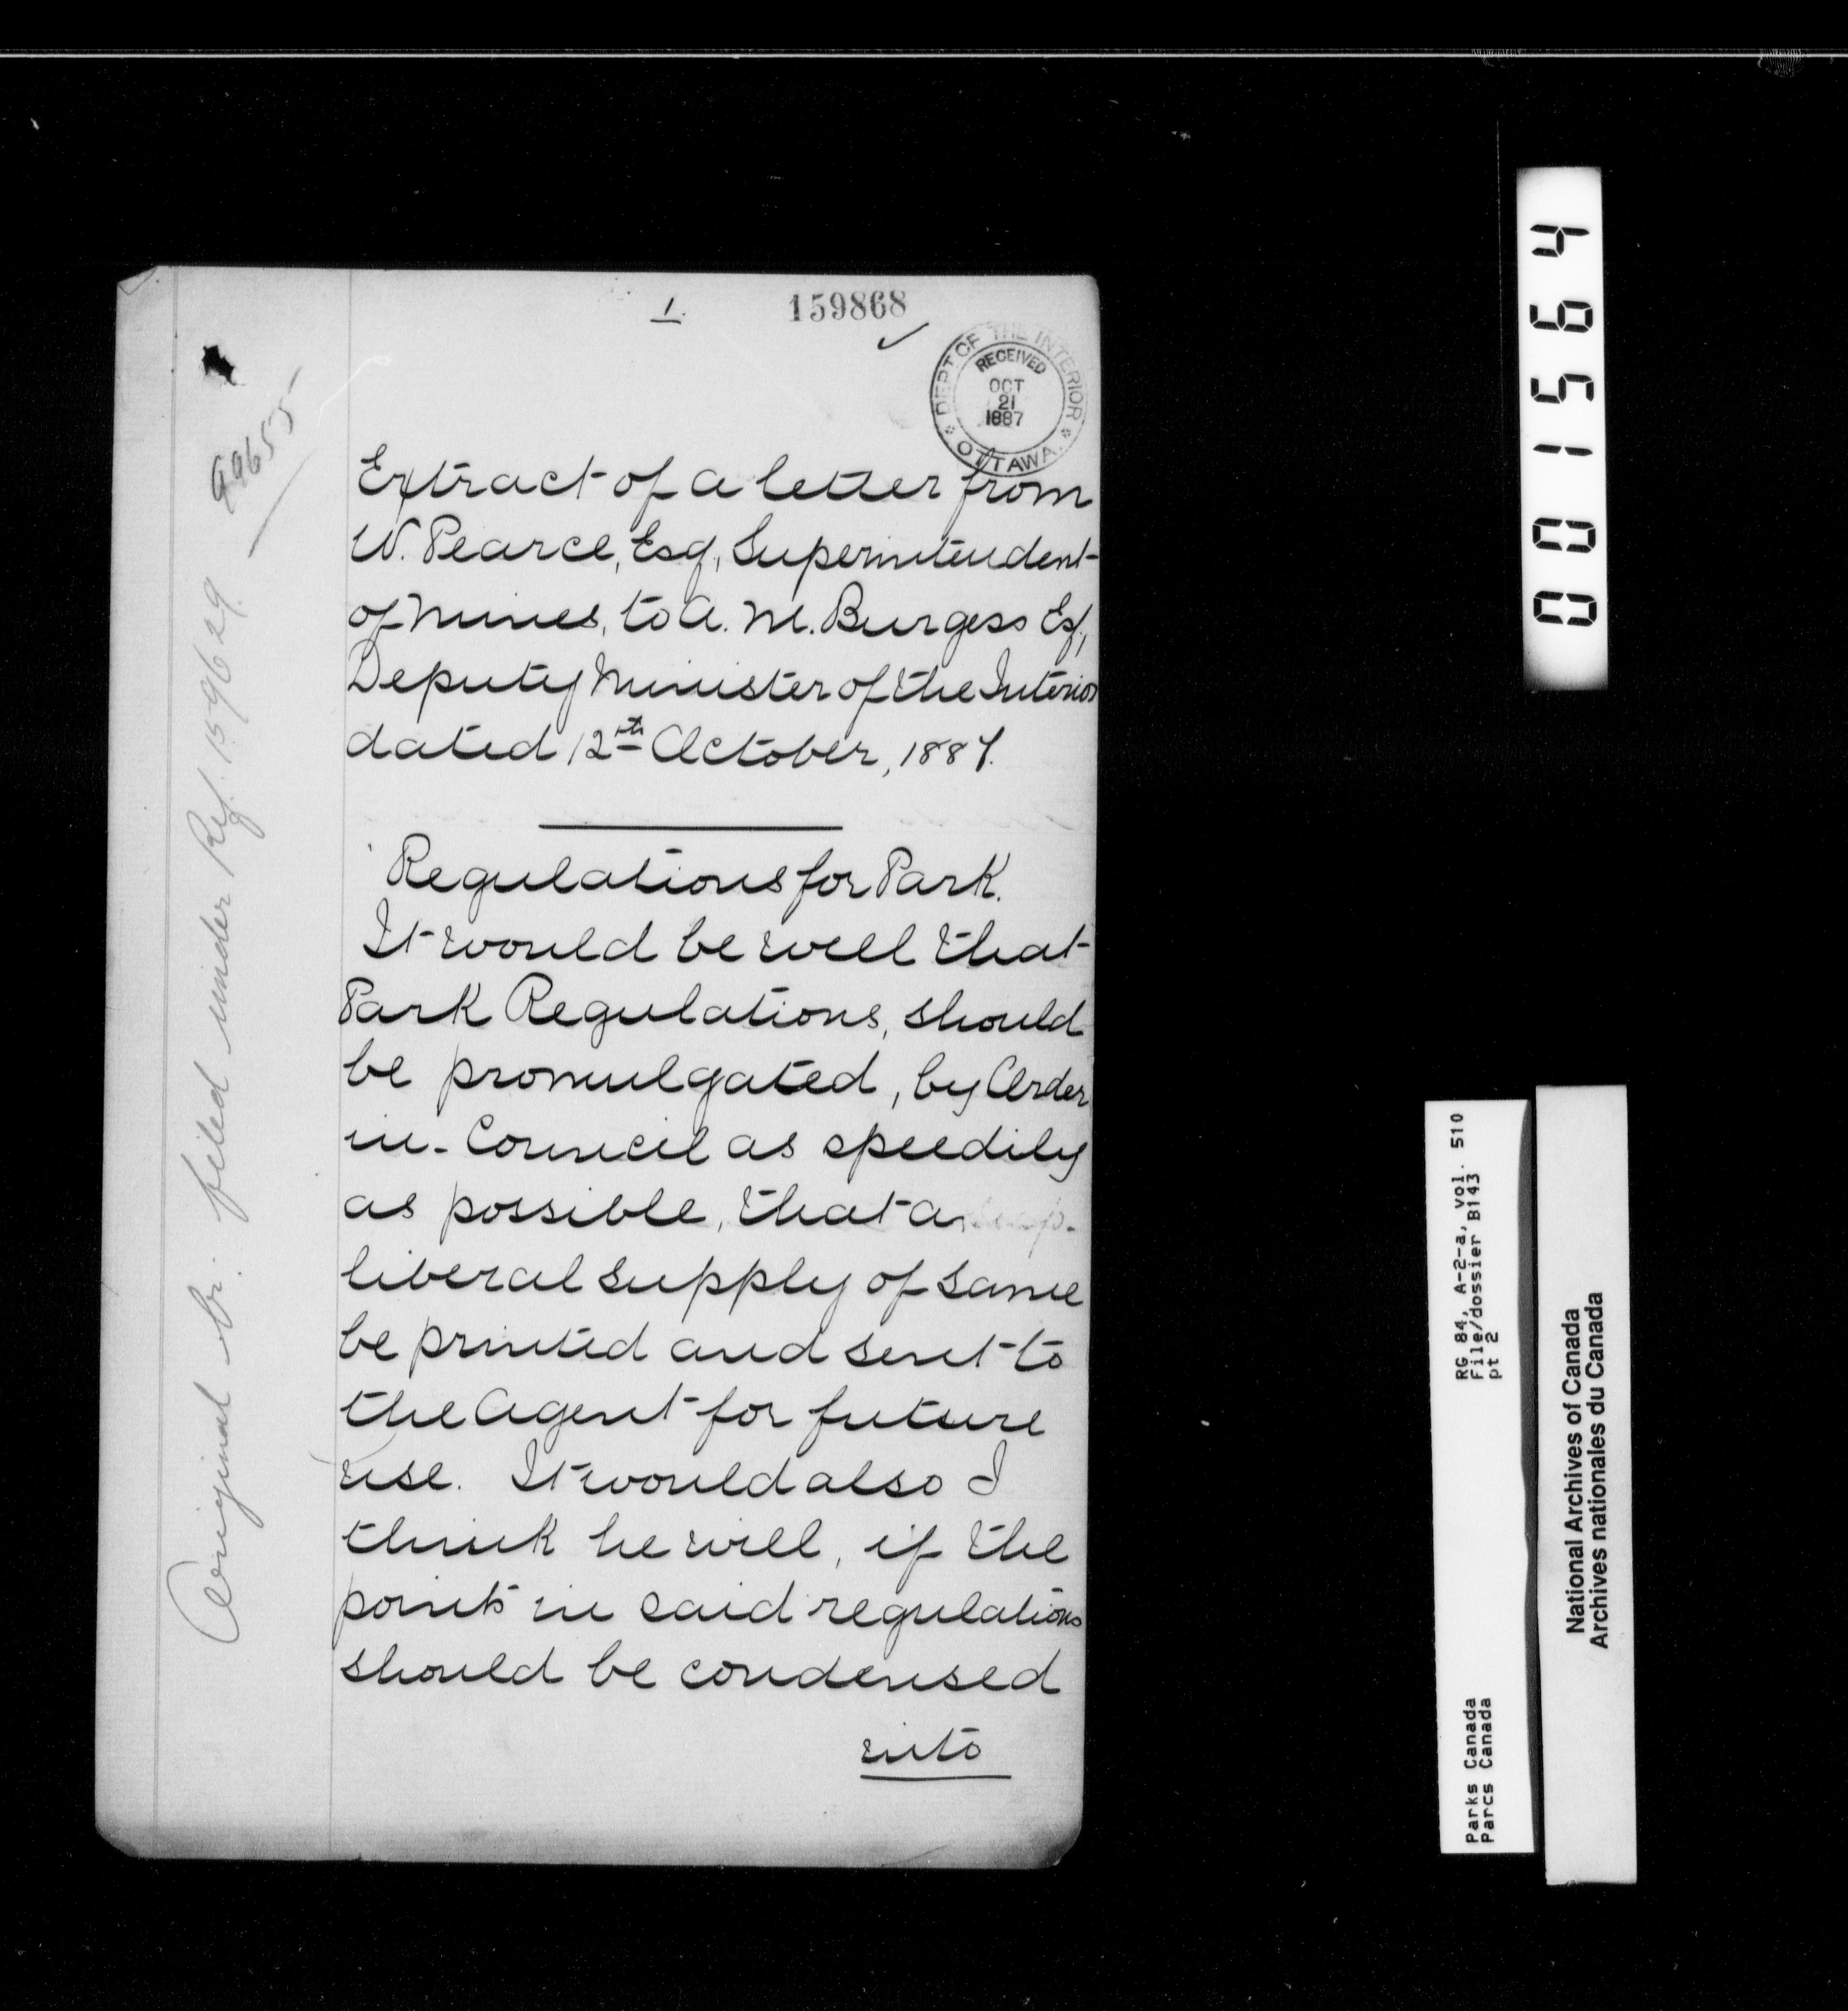 1.
159868
DEPT OF THE INTERIOR
RECEIVED
OCT
21
1887
OTTAWA.
Extract of a letter from
W. Pearce, Esq., Superintendent
of Mines, to A. M. Burgess Esq.,
Deputy Minister of the Interior
dated 12th October, 1887.
Regulations for Park.
It would be well that
Park Regulations, should
be promulgated, by Order
in-Council as speedily
as possible, that a
liberal supply of same
be printed and sent to
the Agent for future
use. It would also I
think be well, if the
points in said regulations
should be condensed
into
Original filed under Ref. 159629.
001564
RG 84, A-2-a, vol. 510
File/dossier B143
pt 2
Parks Canada
Parcs Canada
National Archives of Canada
Archives nationales du Canada